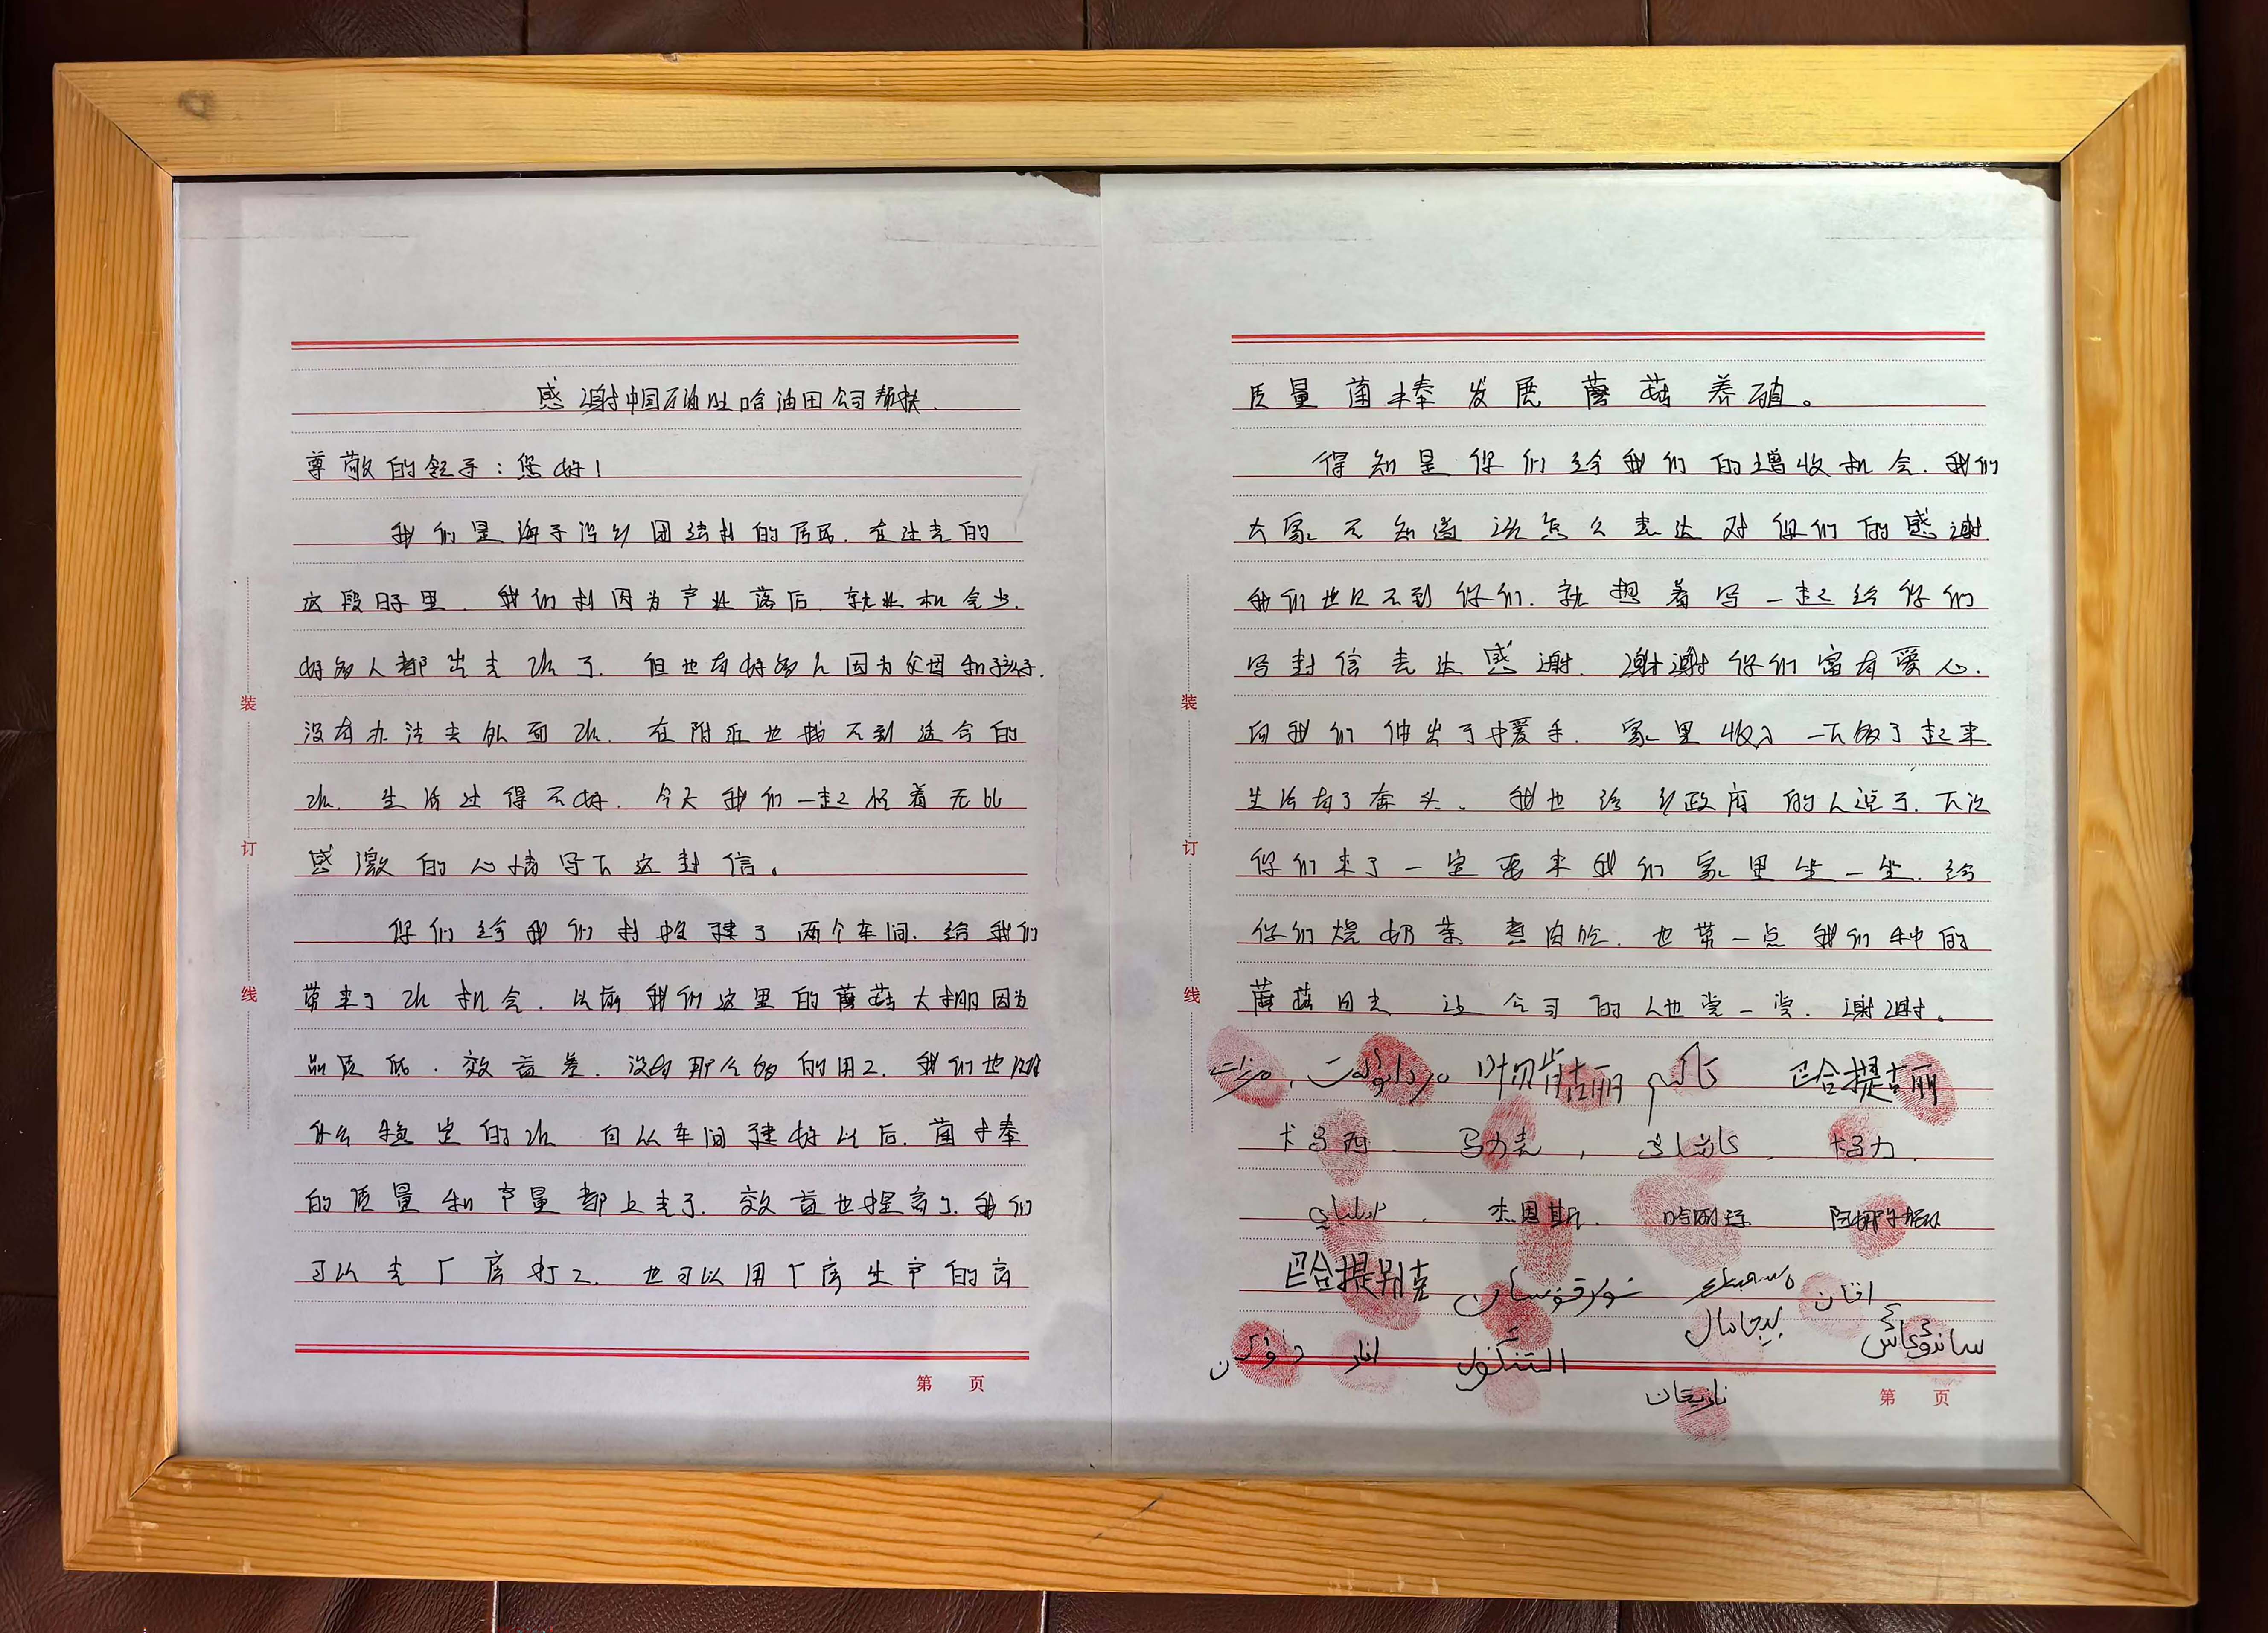 感谢中国石油吐哈油田公司帮扶.
尊敬的领导:您好!
我们是海子沿乡团结村的居民.在过去的
这段日子里.我们村因为产业落后.就业机会少.
好多人都出去工作了.但也有好多人因为父母和孩子.
没有办法去外面工作.在附近也找不到适合的
工作.生活过得不好.今天我们一起怀着无比
感激的心情写下这封信。
你们给我们村投建了两个车间.给我们
带来了工作机会.以前我们这里的蘑菇大棚因为
品质低.效益差.没有那么多的用工.我们也没有
什么稳定的工作 自从车间建好以后.菌棒
的质量和产量都上去了.效益也提高了.我们
可以去厂房打工.也可以用厂房生产的高
质量菌棒发展蘑菇养殖。
得知是你们给我们的增收机会.我们
大家不知道该怎么表达对你们的感谢.
我们也见不到你们.就想着写一起给你们
写封信表达感谢.谢谢你们富有爱心.
向我们伸出了援手.家里收入一下多了起来
生活有了奔头。我也给乡政府的人说了.下次
你们来了一定要来我们家里坐一坐.给
你们烧奶茶煮肉吃.也带一点我们种的
蘑菇回去 让公司的人也尝一尝.谢谢。
叶贝肯古丽 巴合提古丽
卡马西. 马力克, 卡马力.
杰恩斯.
巴合提别克
اقان
انار
نازيحان
装
订
线
第 页
装
订
线
第 页